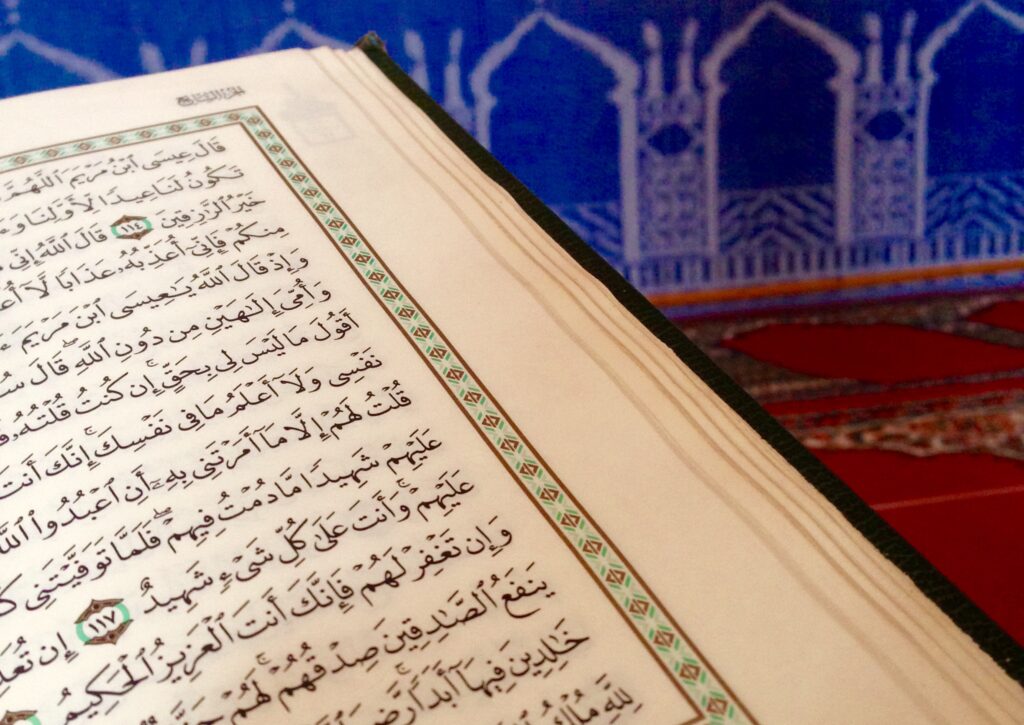 قَالَ عِيسَى ٱبْنُ مَرْيَمَ ٱللَّهُمَّ
تَكُونُ لَنَا عِيدًا لِّأَوَّلِنَا
خَيْرُ ٱلرَّٰزِقِينَ ١١٤ قَالَ ٱللَّهُ إِنِّى
مِنكُمْ فَإِنِّىٓ أُعَذِّبُهُۥ عَذَابًا لَّآ
وَإِذْ قَالَ ٱللَّهُ يَٰعِيسَى ٱبْنَ مَرْيَمَ
وَأُمِّىَ إِلَٰهَيْنِ مِن دُونِ ٱللَّهِۖ قَالَ
أَقُولَ مَا لَيْسَ لِى بِحَقٍّۚ إِن كُنتُ قُلْتُهُۥ
نَفْسِى وَلَآ أَعْلَمُ مَا فِى نَفْسِكَۚ إِنَّكَ أَنتَ
قُلْتُ لَهُمْ إِلَّا مَآ أَمَرْتَنِى بِهِۦٓ أَنِ ٱعْبُدُوا۟ ٱللَّهَ
عَلَيْهِمْ شَهِيدًا مَّا دُمْتُ فِيهِمْۖ فَلَمَّا تَوَفَّيْتَنِى
عَلَيْهِمْۚ وَأَنتَ عَلَىٰ كُلِّ شَىْءٍ شَهِيدٌ ١١٧ إِن
وَإِن تَغْفِرْ لَهُمْ فَإِنَّكَ أَنتَ ٱلْعَزِيزُ ٱلْحَكِيمُ
يَنفَعُ ٱلصَّٰدِقِينَ صِدْقُهُمْۚ لَهُمْ
خَٰلِدِينَ فِيهَآ أَبَدًاۚ رَّضِىَ
لِلَّهِ مُلْكُ